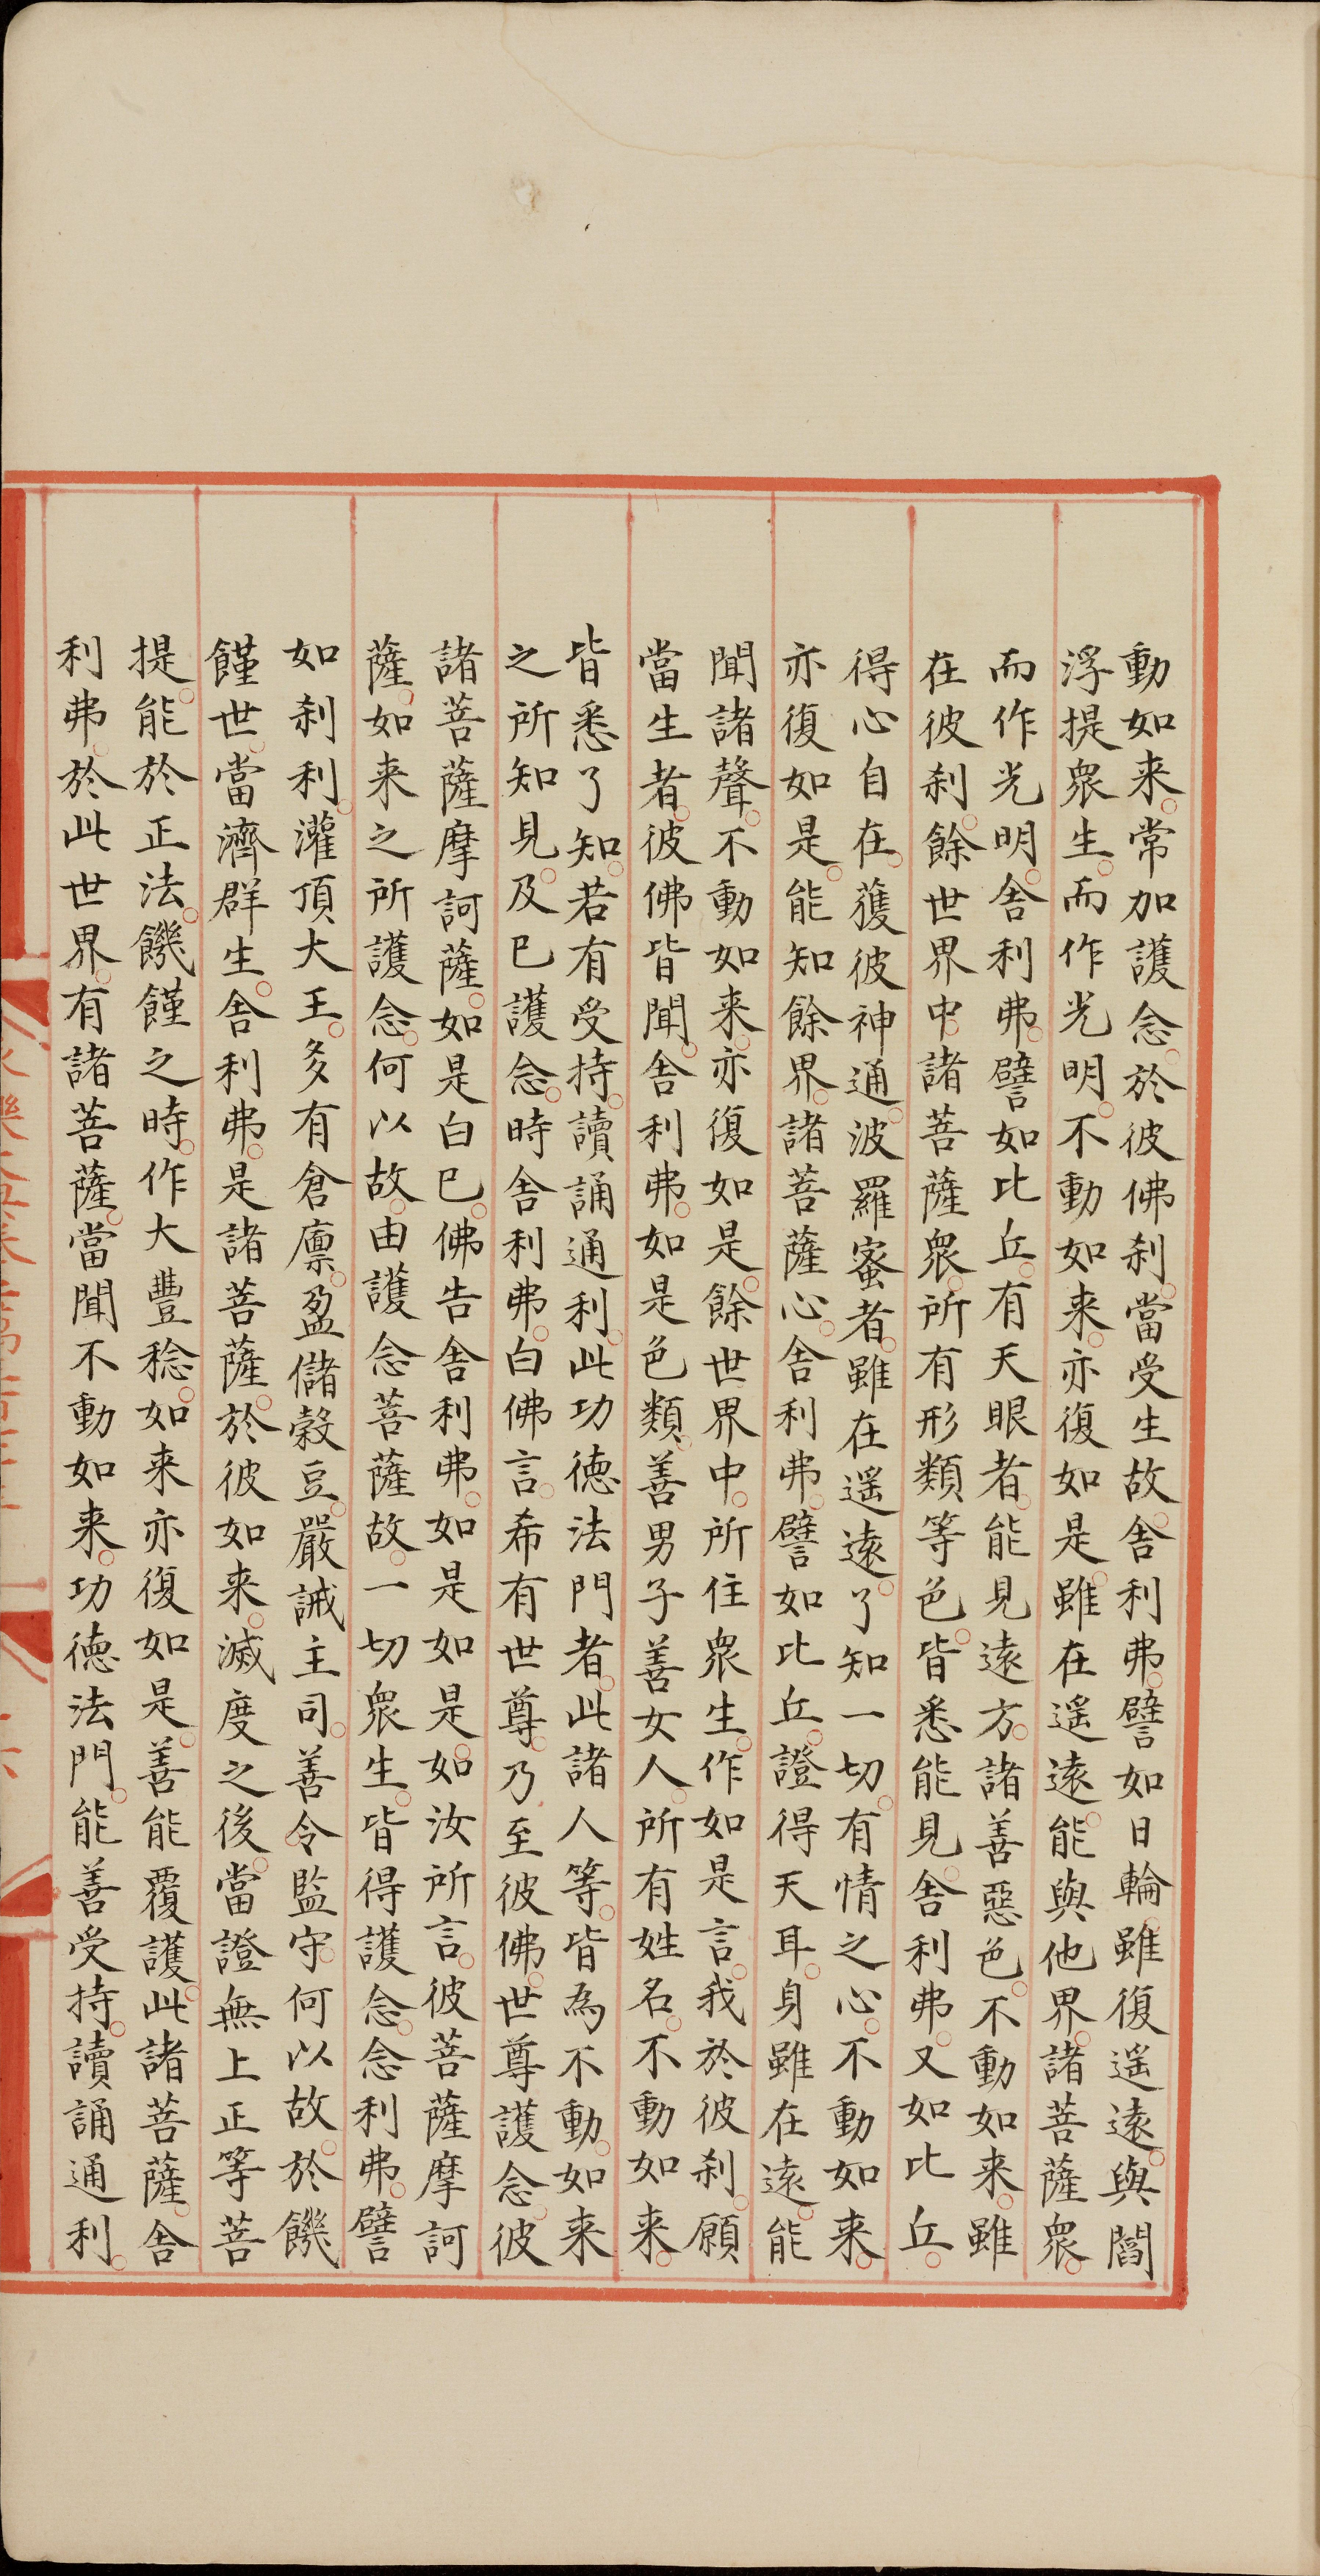 動如来。常加護念。於彼佛刹。當受生故。舍利弗。譬如日輪。雖復遥遠。與閻
浮提衆生。而作光明。不動如来。亦復如是。雖在遥遠。能與他界。諸菩薩衆。
而作光明。舍利弗。譬如比丘。有天眼者。能見遠方。諸善惡色。不動如来。雖
在彼刹。餘世界中。諸菩薩衆。所有形類等色。皆悉能見。舍利弗。又如比丘。
得心自在。獲彼神通。波羅蜜者。雖在遥遠。了知一切。有情之心。不動如来。
亦復如是。能知餘界。諸菩薩心。舍利弗。譬如比丘。證得天耳。身雖在遠。能
聞諸聲。不動如来。亦復如是。餘世界中。所住衆生。作如是言。我於彼刹。願
當生者。彼佛皆聞。舍利弗。如是色類。善男子善女人。所有姓名。不動如来。
皆悉了知。若有受持。讀誦通利。此功徳法門者。此諸人等。皆為不動。如来
之所知見。及已護念。時舍利弗。白佛言。希有世尊。乃至彼佛。世尊護念。彼
諸菩薩摩訶薩。如是白已。佛告舍利弗。如是如是。如汝所言。彼菩薩摩訶
薩。如来之所護念。何以故。由護念菩薩故。一切衆生。皆得護念。念利弗。譬
如刹利。灌頂大王。多有倉廪。盈儲榖豆。嚴誡主司。善令監守。何以故。於饑
饉世。當濟群生。舍利弗。是諸菩薩。於彼如来。滅度之後。當證無上正等菩
提。能於正法。饑饉之時。作大豐稔。如来亦復如是。善能覆護。此諸菩薩。舍
利弗。於此世界。有諸菩薩。當聞不動如来。功徳法門。能善受持。讀誦通利。